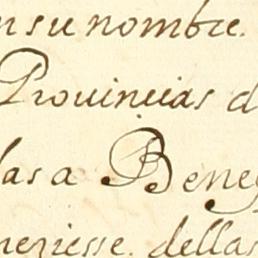 n su nombre.
Prouincias d
las a Bene
neziesse. dellas